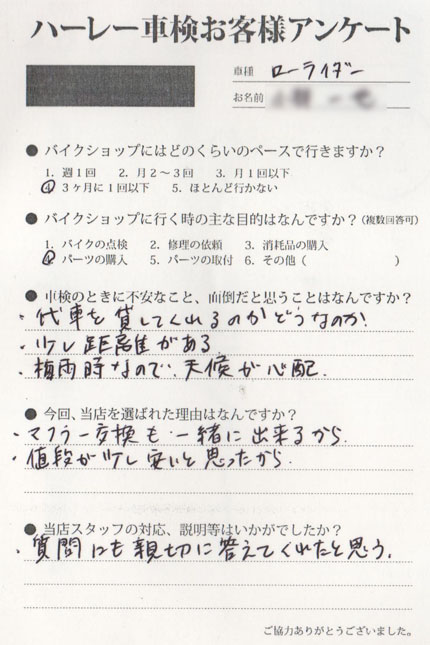 ハーレー車検お客様アンケート
車種 ローライダー
お名前
● バイクショップにはどのくらいのペースで行きますか?
1. 週1回 2. 月2~3回 3. 月1回以下
④ 3ヶ月に1回以下 5. ほとんど行かない
● バイクショップに行く時の主な目的はなんですか?(複数回答可)
1. バイクの点検 2. 修理の依頼 3. 消耗品の購入
④ パーツの購入 5. パーツの取付 6. その他( )
● 車検のときに不安なこと、面倒だと思うことはなんですか?
・代車を貸してくれるのかどうなのか。
・少し距離がある
・梅雨時なので、天候が心配.
● 今回、当店を選ばれた理由はなんですか?
・マフラー交換も一緒に出来るから.
・値段が少し安いと思ったから.
● 当店スタッフの対応、説明等はいかがでしたか?
・質問にも親切に答えてくれたと思う.
ご協力ありがとうございました。